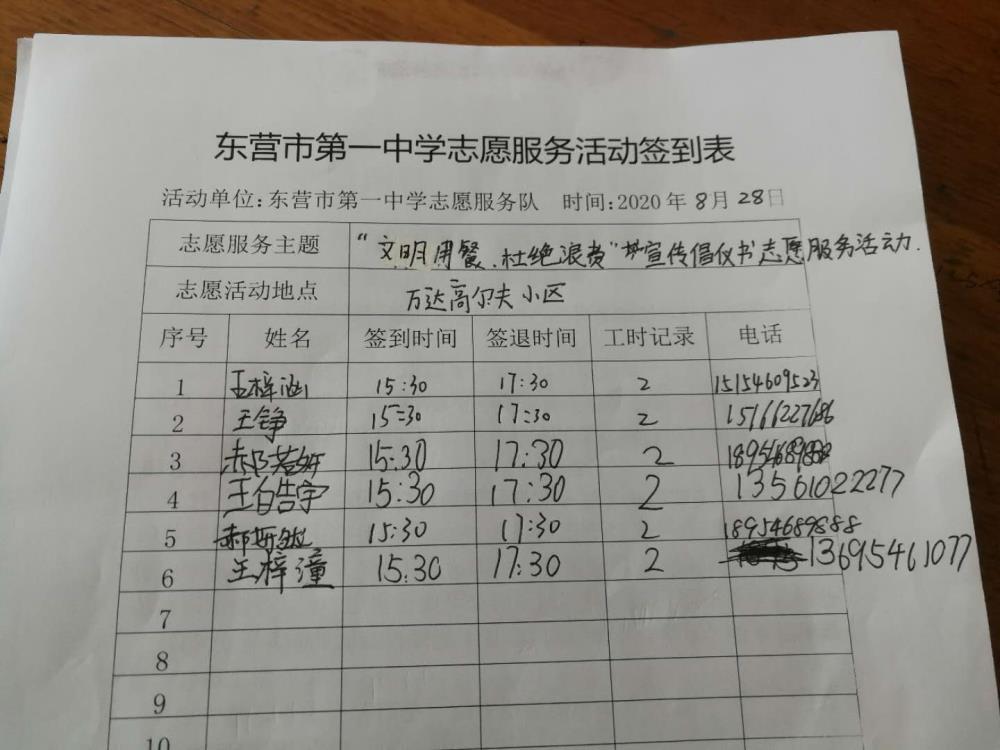 东营市第一中学志愿服务活动签到表
活动单位:东营市第一中学志愿服务队 时间:2020年8月28日
志愿服务主题 “文明用餐、杜绝浪费”宣传倡仪书志愿服务活动.
志愿活动地点 万达高尔夫小区
序号 姓名 签到时间 签退时间 工时记录 电话
1 王梓涵 15:30 17:30 2 15154609523
2 王铮 15:30 17:30 2 15166227686
3 郝若妍 15:30 17:30 2
4 王皓宇 15:30 17:30 2 13561022277
5 郝斯然 15:30 17:30 2 18954689888
6 王梓潼 15:30 17:30 2 13695461077
7
8
9
10